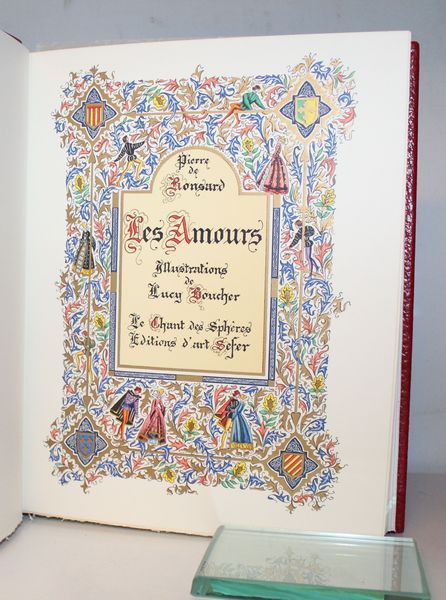 Pierre
de
Ronsard
Les Amours
Illustrations
de
Lucy Boucher
Le Chant des Sphères
Editions d'art Sefer